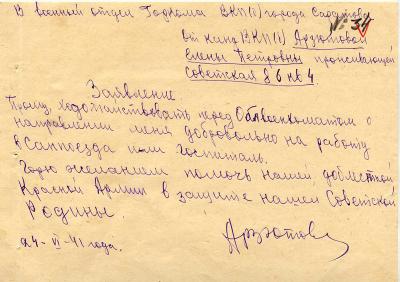 № 34
В военный отдел Горкома ВКП(б) города Саратова
от канд ВКП(б) Арзютовой
Елены Петровны проживающей
Советская 86 кв 4
Заявление.
Прошу ходотайствовать перед Облвоенкоматом о
направлении меня добровольно на работу
в Санпоезда или госпиталь.
Горю желанием помочь нашей доблестной
Красной Армии в защите нашей Советской
Родины.
Арзютова
24-VI-41 года.